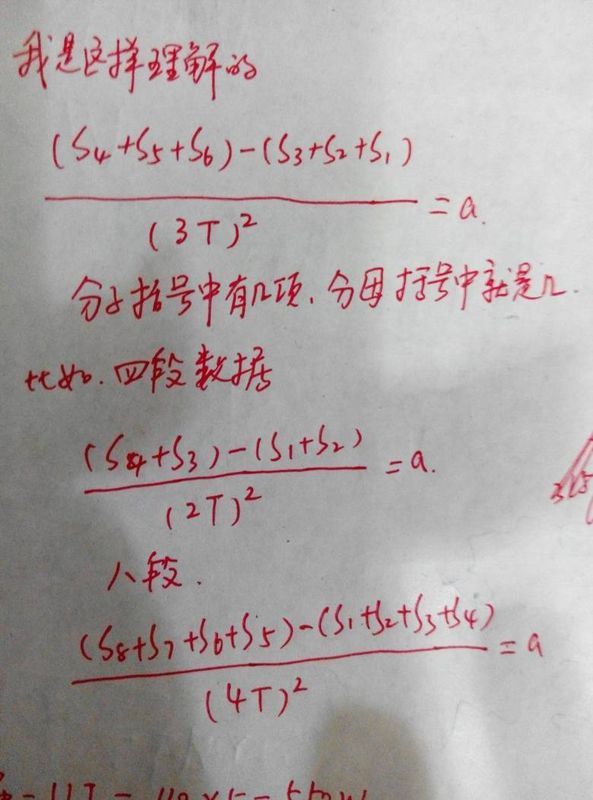 我是这样理解的
(S4+S5+S6)-(S3+S2+S1)
(3T)² =a.
分子括号中有几项,分母括号中就是几.
比如.四段数据
(S4+S3)-(S1+S2)
(2T)² =a.
八段.
(S8+S7+S6+S5)-(S1+S2+S3+S4)
(4T)² =a